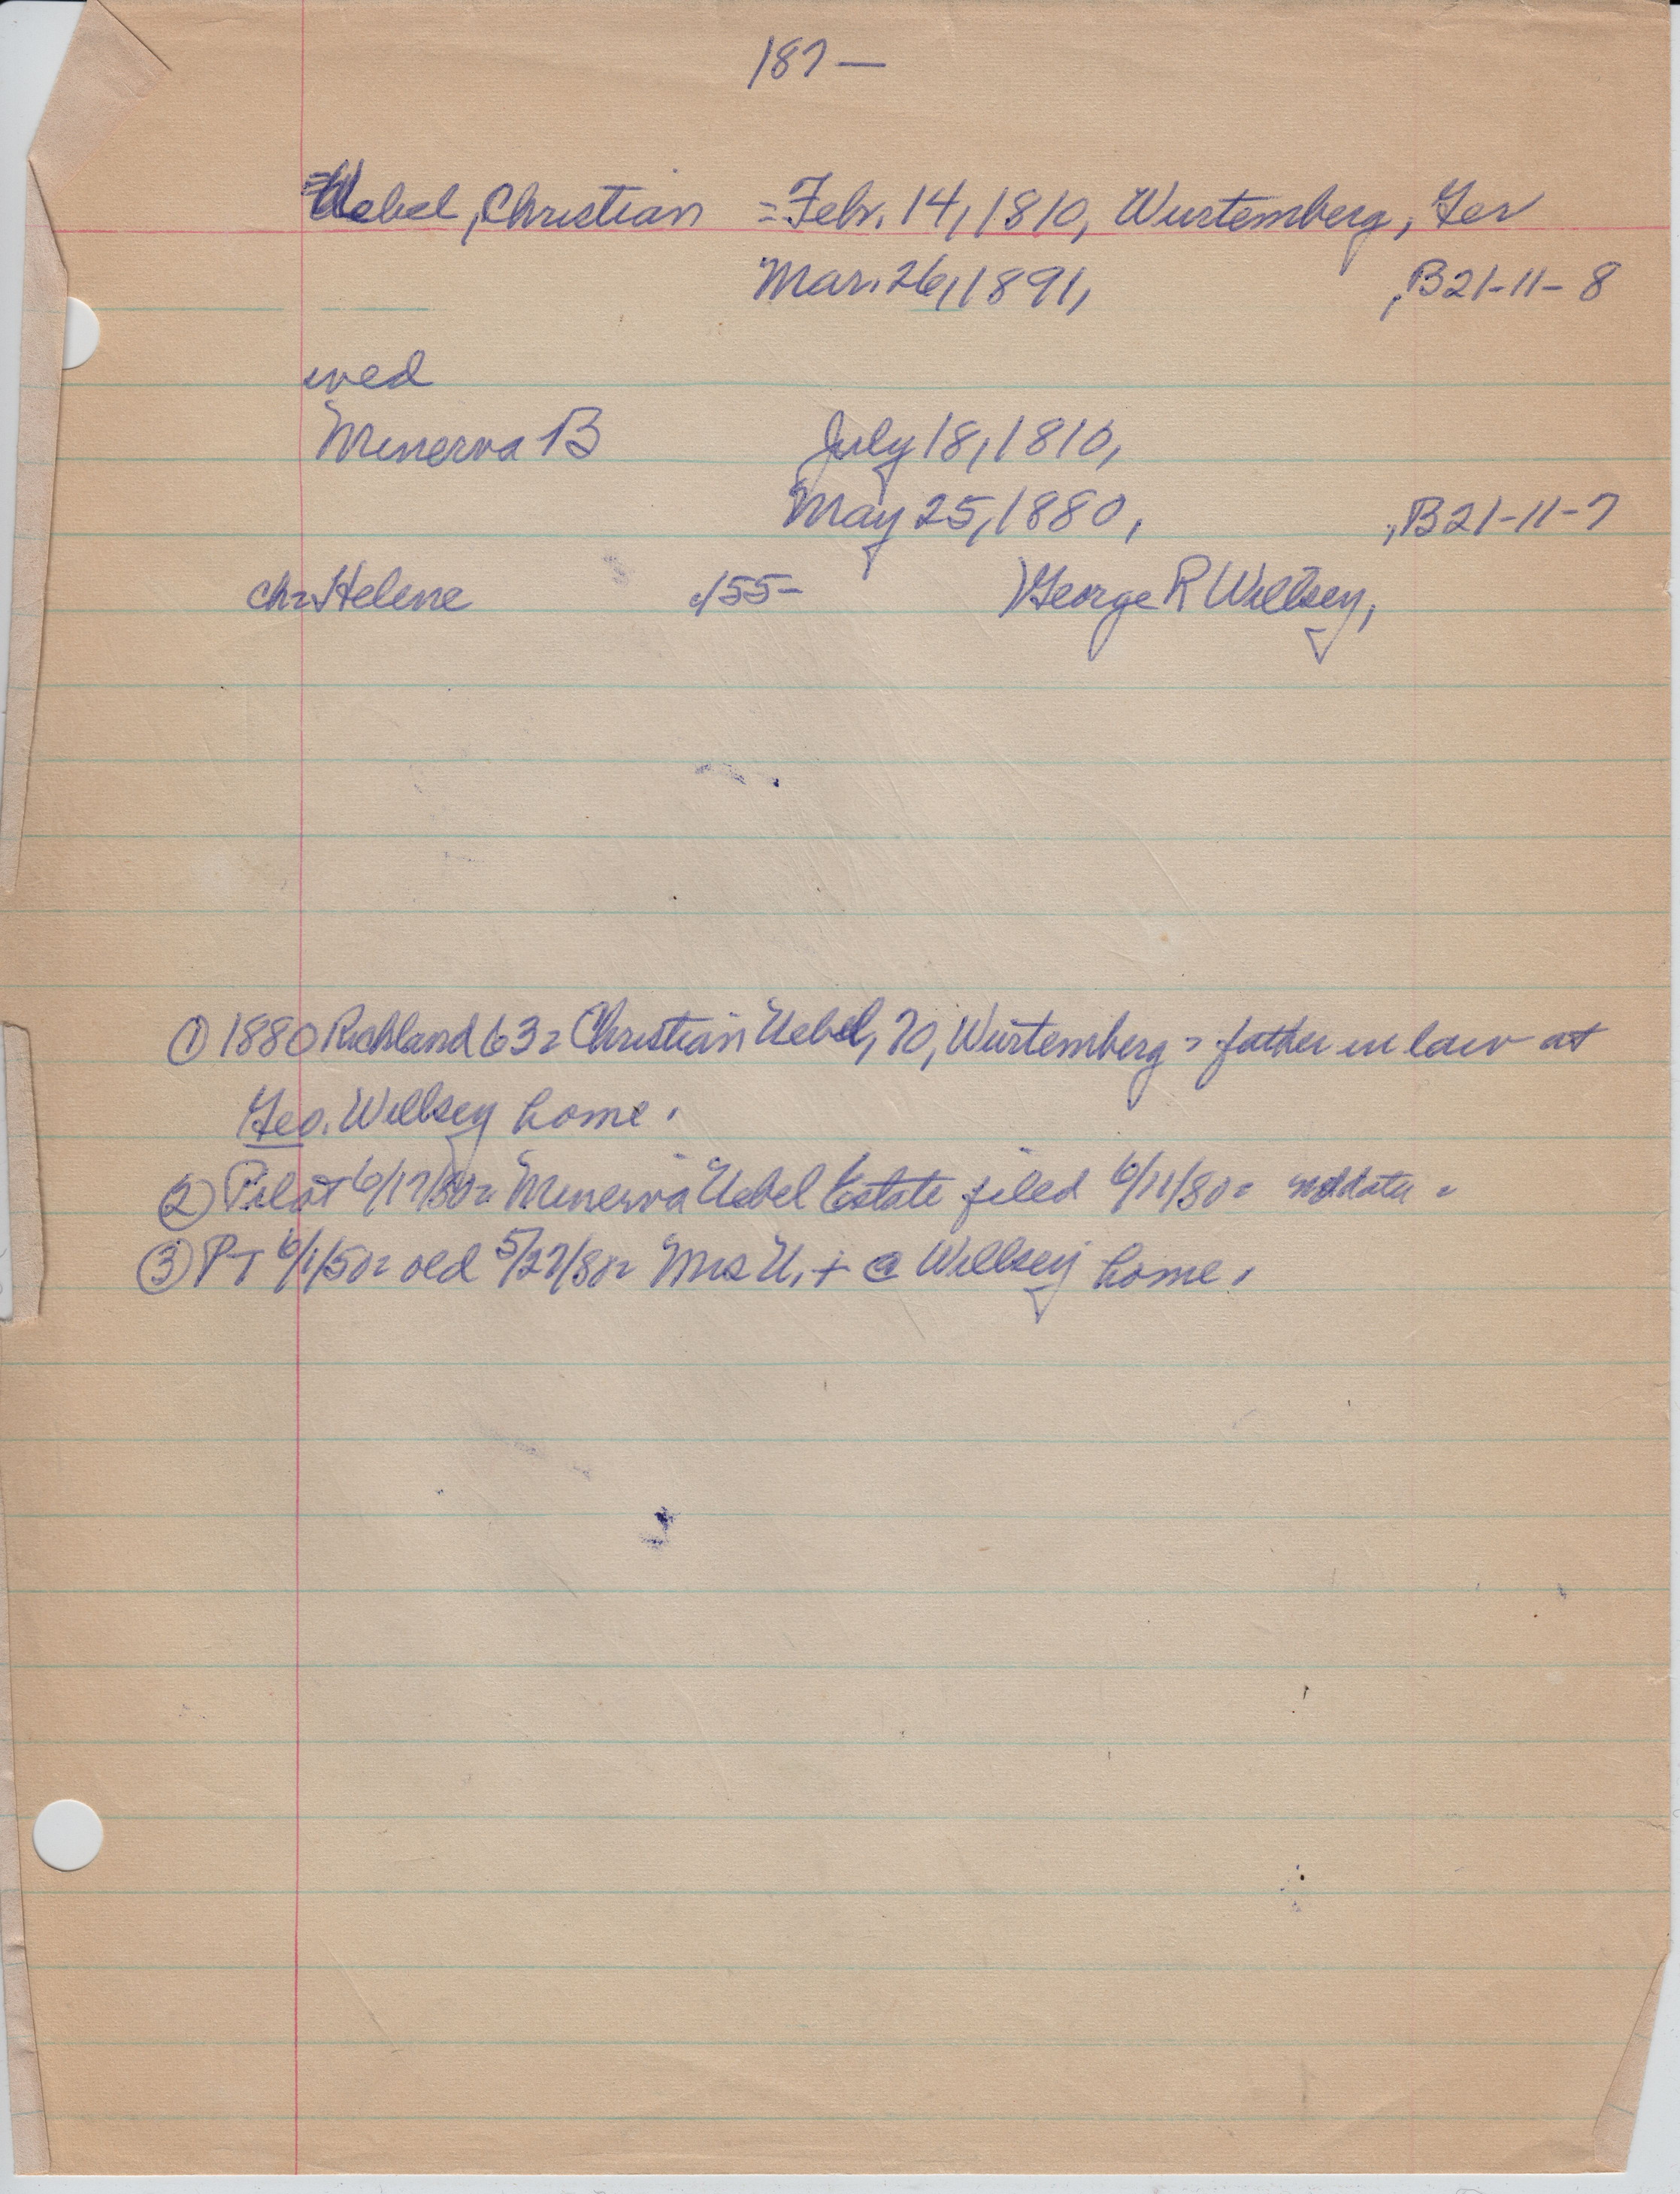 187—
Uebel, Christian = Febr. 14, 1810, Wurtemberg, Ger
Mar. 26, 1891, , B21-11-8
wed
Minerva B July 18, 1810,
May 25, 1880, , B21-11-7
ch= Helene c/55- )George R Willsey,
① 1880 Richland 63= Christian Uebel, 70, Wurtemberg = father in law at
Geo. Willsey home.
② Pilot 6/17/80= Minerva Uebel Estate filed 6/11/80= no data =
③ PT 6/1/50= old 5/27/80= Mrs U, + @ Willsey home,